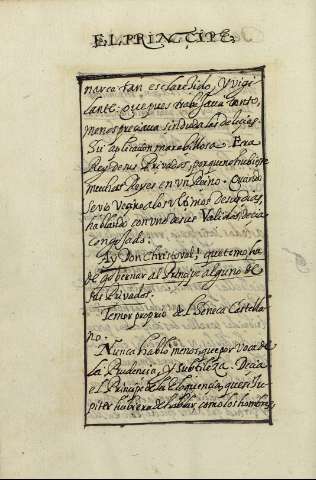 EL PRINCIPE,
narca tan esclarecido, y vigi
lante: Que pues trabajaua tanto,
menospreciaua sin duda las delicias.
Su aplicacion marabillosa. Era
Rey de sus Priuados, porque no hubiese
muchos Reyes en vn Reino. Quando
se vio Vecino a los vltimos desordenes,
hablando con vno de sus Validos, decia
congojado:
Ay Don Christoval! que temo ha
de gobernar al Principe alguno de
sus Priuados.
Temor proprio del Seneca Castella
no.
Nunca hablò menos, que por voca de
la Prudencia, y Subtileza. Decia
el Principe de la Eloquencia, que si Ju
piter hubiera de hablar, como los hombres,